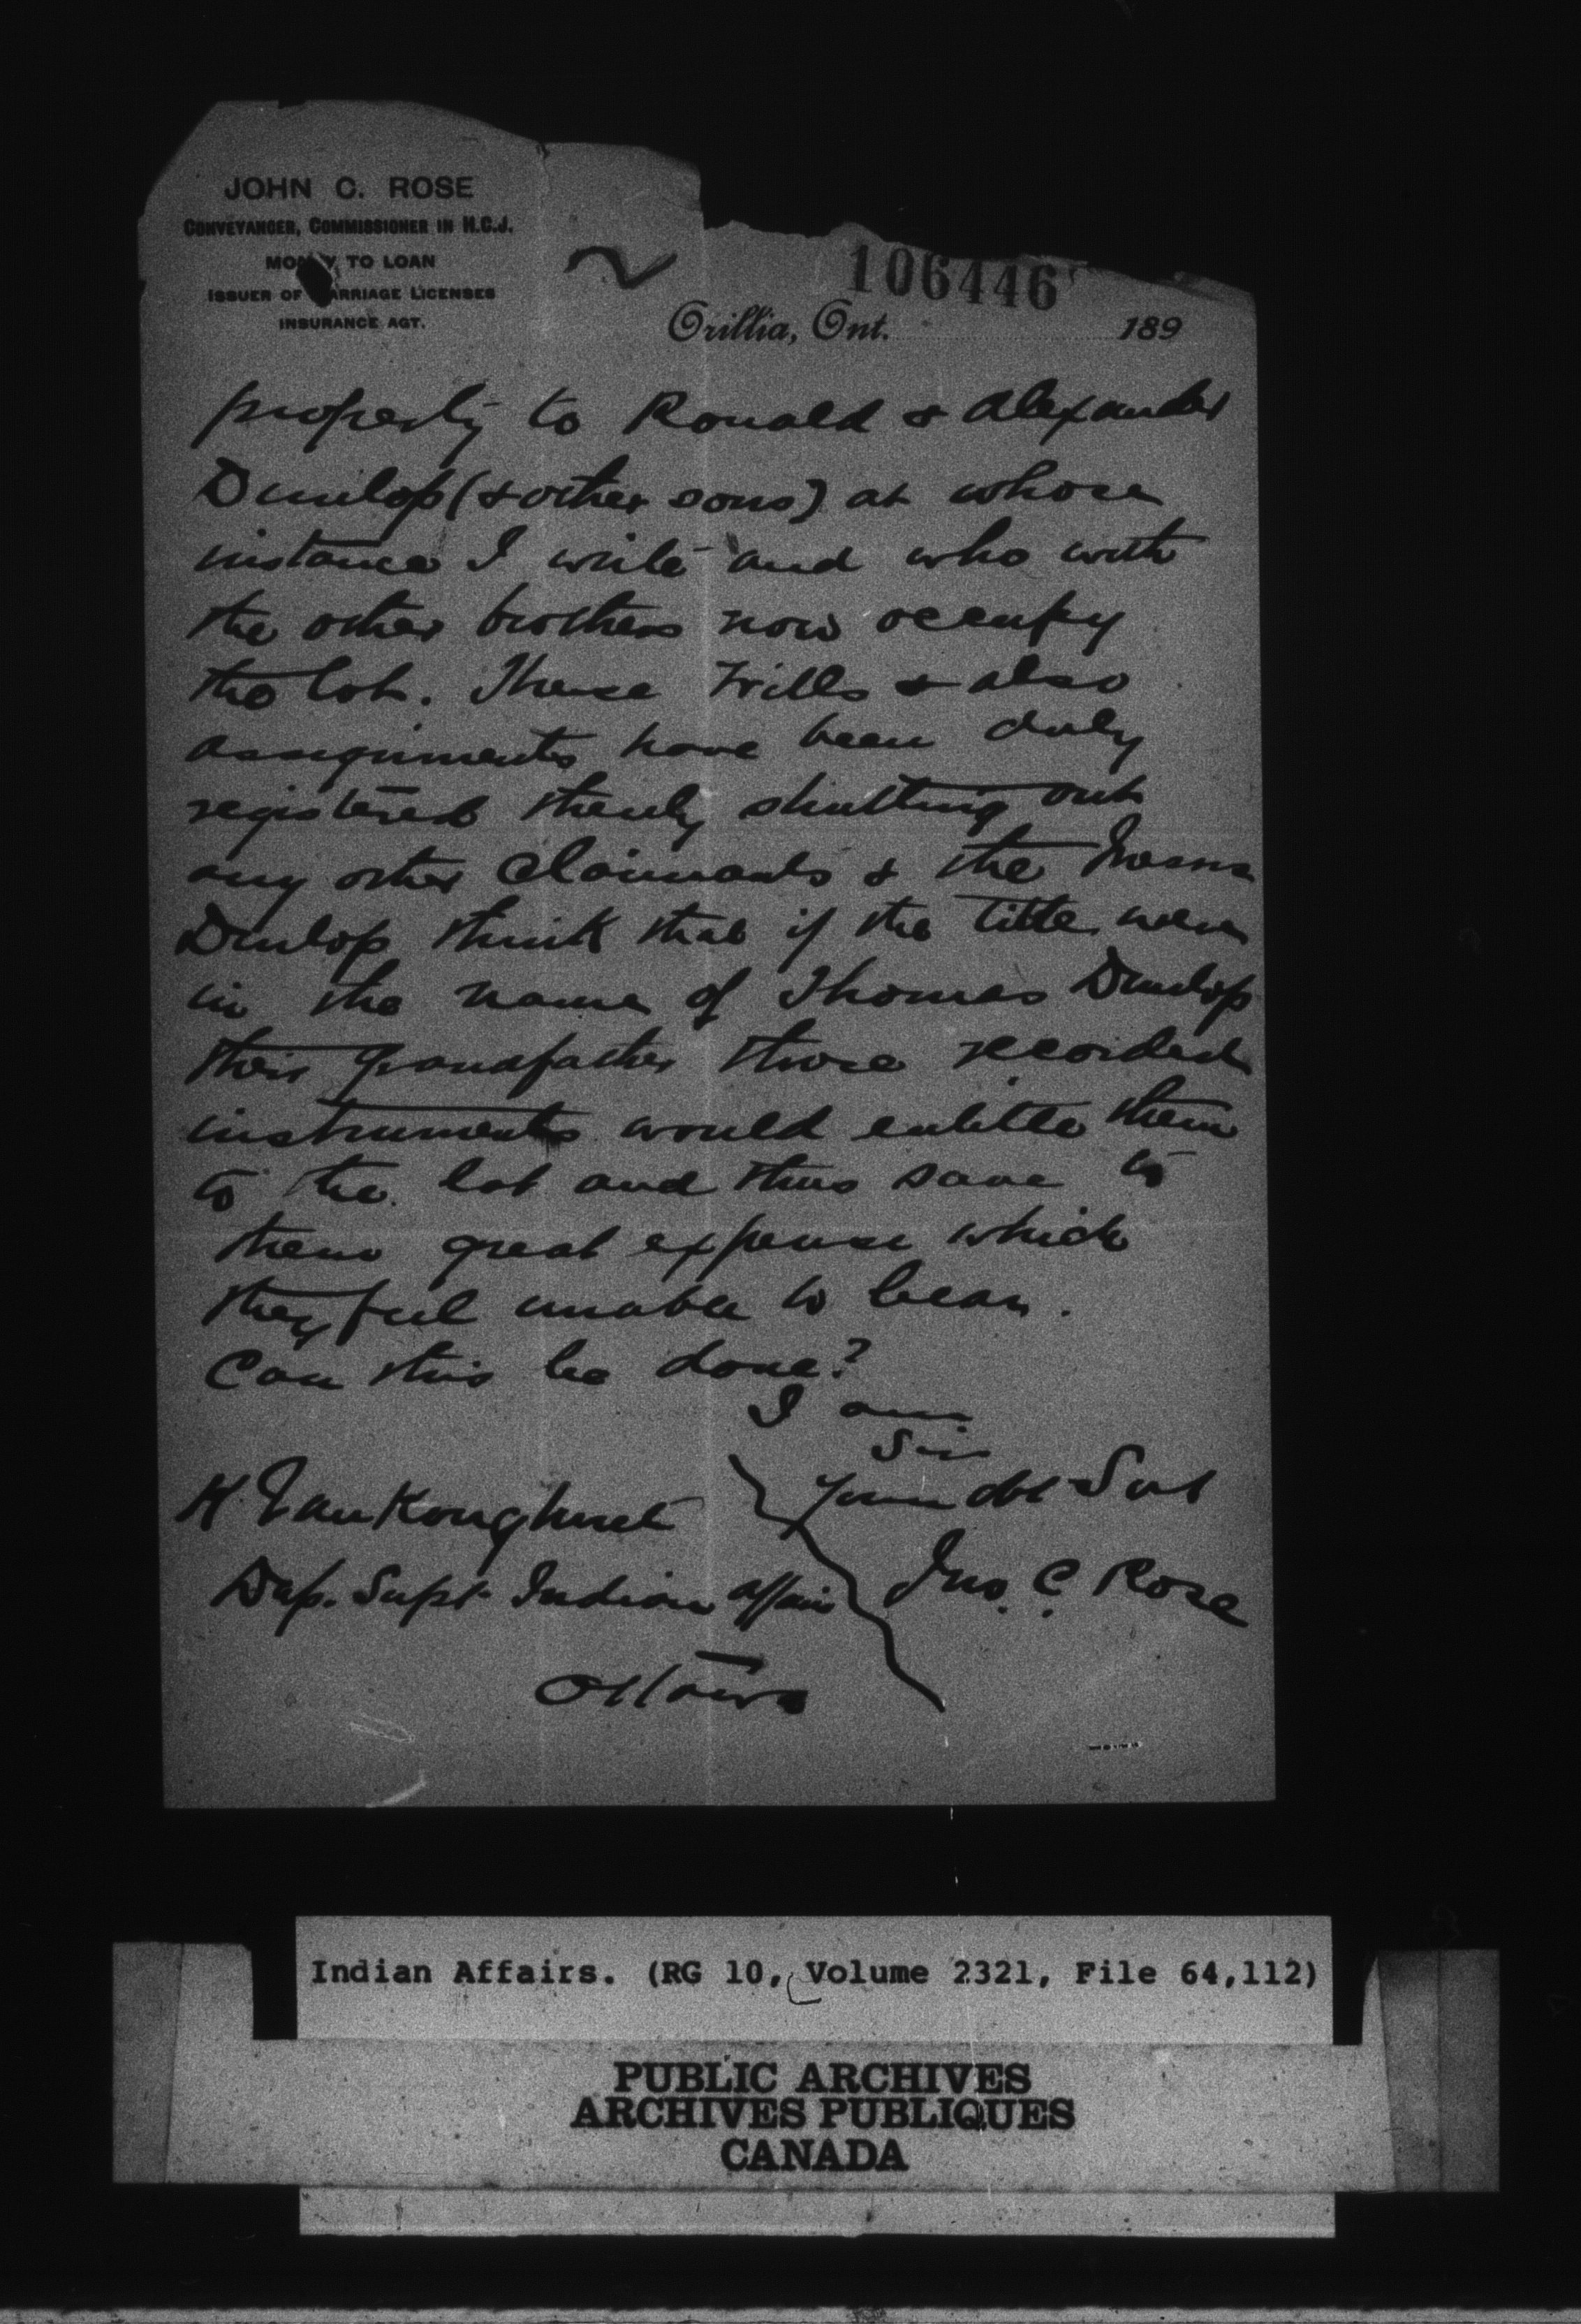 JOHN C. ROSE
CONVEYANCER, COMMISSIONER IN H.C.J.
MONEY TO LOAN
ISSUER OF MARRIAGE LICENSES
INSURANCE AGT.
106446
Orillia, Ont. 189
property to Ronald & Alexander
Dunlop (& other sons) at whose
instance I write and who with
the other brothers now occupy
the lot. These Wills & also
assignments have been duly
registered thereby shutting out
any other claimants & the Messrs
Dunlop think that if the title were
in the name of Thomas Dunlop
their grandfather those recorded
instruments would entitle them
to the lot and thus save to
them great expense which
they feel unable to bear.
Can this be done?
I am
Sir
Your obt Svt
Jno. C. Rose
Vankoughnet
Dep. Supt Indian Affairs
Ottawa
Indian Affairs. (RG 10, Volume 2321, File 64,112)
PUBLIC ARCHIVES
ARCHIVES PUBLIQUES
CANADA